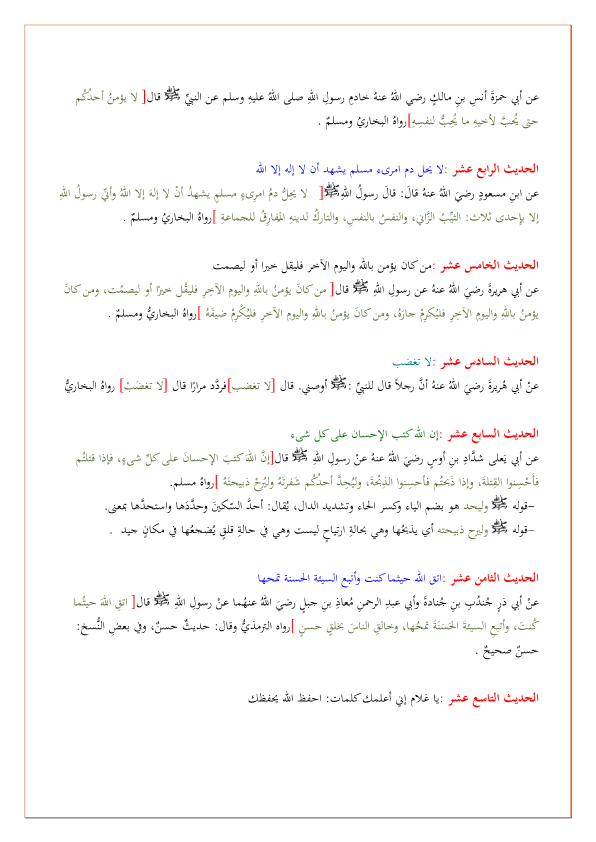 عن أبي حمزةَ أنسِ بنِ مالكٍ رضي اللهُ عنهُ خادمِ رسولِ اللهِ صلى اللهُ عليهِ وسلم عن النبيِّ ﷺ قال[ لا يؤمنُ أحدُكُم
حتى يُحبَّ لأخيهِ ما يُحِبُّ لنفسِهِ]رواهُ البخاريُ ومسلمٌ .
الحديث الرابع عشر :لا يحل دم امرىء مسلم يشهد أن لا إله إلا الله
عن ابنِ مسعودٍ رضيَ اللهُ عنهُ قالَ: قالَ رسولُ اللهِﷺ[ لا يحلُّ دمُ امرِىءٍ مسلمٍ يشهدُ أنْ لا إلهَ إلا اللهُ وأنّي رسولُ اللهِ
إلا بإِحدى ثلاث: الثيِّبُ الزَّاني، والنفسُ بالنفسِ، والتاركُ لدينهِ المُفارِقُ للجماعةِ ]رواهُ البخاريُ ومسلمٌ .
الحديث الخامس عشر :من كان يؤمن بالله واليوم الآخر فليقل خيرا أو ليصمت
عن أبي هريرةَ رضيَ اللهُ عنهُ عن رسولِ اللهِ ﷺ قال[ من كانَ يؤمنُ باللهِ واليومِ الآخرِ فليقُل خيرًا أو ليصمُت، ومن كانَ
يؤمنُ باللهِ واليومِ الآخرِ فليُكرِمْ جارَهُ، ومن كانَ يؤمنُ باللهِ واليومِ الآخرِ فليُكْرِمْ ضيفَهُ ]رواهُ البخاريُّ ومسلمٌ .
الحديث السادس عشر :لا تغضب
عنْ أبي هُريرةَ رضيَ اللهُ عنهُ أنَّ رجلاً قال للنبيِّ :ﷺ أوصني. قال [لا تغضب]فردَّد مرارًا قال [لا تغضَبْ] رواهُ البخاريُّ
الحديث السابع عشر :إن الله كتب الإحسان على كل شىء
عن أبي يَعلى شدَّادِ بنِ أوسٍ رضيَ اللهُ عنهُ عنْ رسولِ اللهِ ﷺ قال[إنَّ اللهَ كتبَ الإحسانَ على كلّ شىءٍ، فإذا قتلتُم
فأَحْسِنوا القِتلةَ، وإذا ذَبحتُم فأحسِنوا الذِبْحَةَ، وليُحِدَّ أحدُكُم شَفرتَهُ وليُرِحْ ذبيحتَهُ ]رواهُ مسلم.
–قوله ﷺ وليحد هو بضم الياء وكسر الحاء وتشديد الدال، يُقال: أحدَّ السّكينَ وحدَّدَها واستحدَّها بمعنى.
–قوله ﷺ وليرح ذبيحته أي يذبحُها وهي بحالةِ ارتياحٍ ليست وهي في حالةِ قلقٍ يُضجعُها في مكانٍ جيد .
الحديث الثامن عشر :اتق الله حيثما كنت وأتبع السيئة الحسنة تمحها
عنْ أبي ذرٍ جُندُبِ بنِ جُنادةَ وأبي عبدِ الرحمنِ مُعاذِ بنِ جبلٍ رضيَ اللهُ عنهُما عنْ رسولِ اللهِ ﷺ قال[ اتقِ اللهَ حيثُما
كُنتَ، وأتبعِ السيئةَ الحَسَنَةَ تمحُها، وخالقِ الناسَ بخلقٍ حسنٍ ]رواه الترمذيُّ وقال: حديثٌ حسنٌ، وفي بعضِ النُّسخ:
حسنٌ صحيحٌ .
الحديث التاسع عشر :يا غلام إني أعلمك كلمات: احفظ الله يحفظك